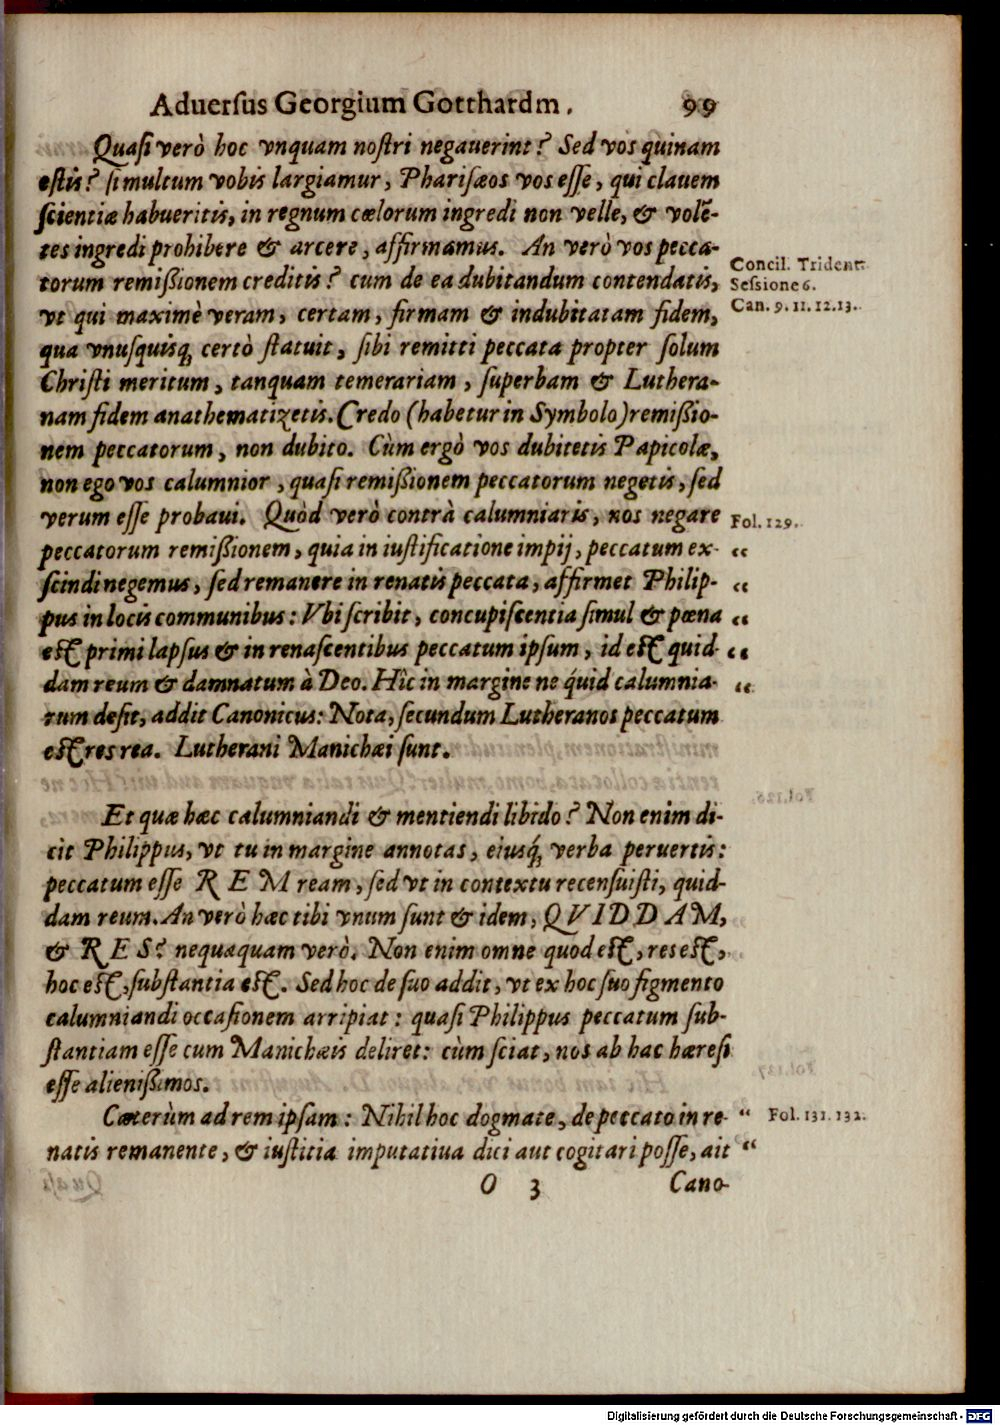 Aduersus Georgium Gotthardm. 99
Quasi verò hoc vnquam nostri negauerint? Sed vos quinam
estis? si multum vobis largiamur, Pharisæos vos esse, qui clauem
scientiæ habueritis, in regnum cælorum ingredi non velle, & volē-
tes ingredi prohibere & arcere, affirmamus. An verò vos pecca-
torum remißionem creditis? cum de ea dubitandum contendatis,
vt qui maximè veram, certam, firmam & indubitatam fidem,
qua vnusquisq; certò statuit, sibi remitti peccata propter solum
Christi meritum, tanquam temerariam, superbam & Luthera-
nam fidem anathematizetis. Credo (habetur in Symbolo) remißio-
nem peccatorum, non dubito. Cùm ergò vos dubitetis Papicolæ,
non ego vos calumnior, quasi remißionem peccatorum negetis, sed
verum esse probaui. Quòd verò contrà calumniaris, nos negare
peccatorum remißionem, quia in iustificatione impij, peccatum ex-
scindi negemus, sed remanere in renatis peccata, affirmet Philip-
pus in locis communibus: Vbi scribit, concupiscentia simul & pœna
est primi lapsus & in renascentibus peccatum ipsum, id est quid-
dam reum & damnatum à Deo. Hîc in margine ne quid calumnia-
rum desit, addit Canonicus: Nota, secundum Lutheranos peccatum
est res rea. Lutherani Manichæi sunt.
Et quæ hæc calumniandi & mentiendi libido? Non enim di-
cit Philippus, vt tu in margine annotas, eiusq́; verba peruertis:
peccatum esse REM ream, sed vt in contextu recensuisti, quid-
dam reum. An verò hæc tibi vnum sunt & idem, QVIDDAM,
& RES? nequaquam verò. Non enim omne quod est, res est,
hoc est, substantia est. Sed hoc de suo addit, vt ex hoc suo figmento
calumniandi occasionem arripiat: quasi Philippus peccatum sub-
stantiam esse cum Manichæis deliret: cùm sciat, nos ab hac hæresi
esse alienißimos.
Cæterùm ad rem ipsam: Nihil hoc dogmate, de peccato in re-
natis remanente, & iustitia imputatiua dici aut cogitari posse, ait
O 3 Cano-
Concil. Trident.
Sessione 6.
Can. 9. 11. 12. 13.
Fol. 129.
“
“
“
“
“
“ Fol. 131. 132.
“
Digitalisierung gefördert durch die Deutsche Forschungsgemeinschaft - DFG